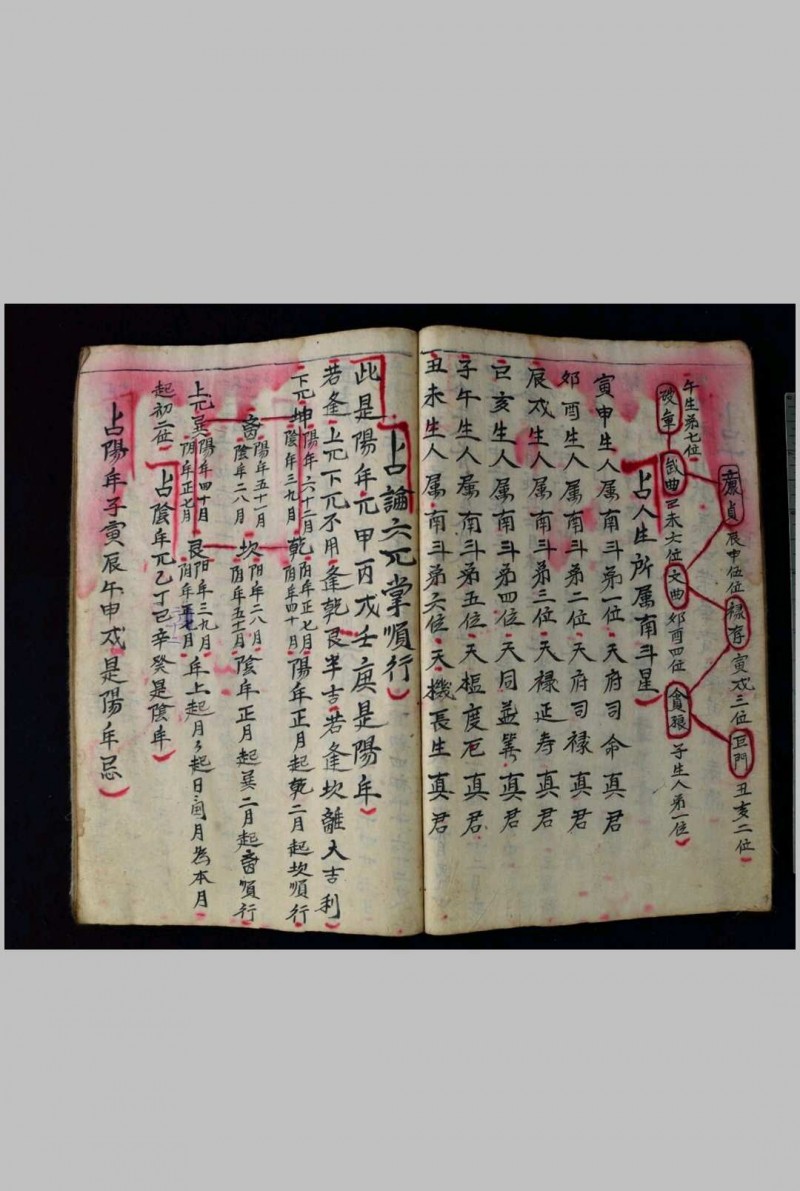 巨門 丑亥二位
祿存 寅戌三位
廉貞 辰申伍位
貪狼 子生人弟一位
文曲 夘酉四位
武曲 巳未六位
破軍
午生弟七位
占人生所属南斗星
寅申生人属南斗弟一位天府司命真君
夘酉生人属南斗弟二位天府司禄真君
辰戌生人属南斗弟三位天禄延寿真君
巳亥生人属南斗弟四位天同益筭真君
子午生人属南斗弟五位天樞度厄真君
丑未生人属南斗弟六位天機長生真君
占論六兀掌順行
此是陽年兀甲丙戊壬庚是陽年
若逢上兀下兀不用逢乾艮半吉若逢坎離大吉利
下兀坤 陽年六十二月 陰年三九月 乾 阴年正七月 阴年四十月 陽年正月起乾二月起坎順行
离 陽年五十一月 陰年二八月 坎 阳年二八月 阴年五十一月 陰年正月起巽二月起离順行
上兀巽 陽年四十月 阴年正七月 艮 阳年三九月 年上起月々起日闰月為本月
起初二位
占陰年兀乙丁己辛癸是陰年
占陽年子寅辰午申戌是陽年忌